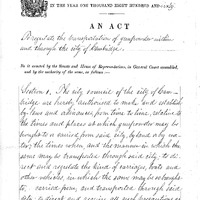 IN THE YEAR ONE THOUSAND EIGHT HUNDRED AND sixty
AN ACT
To regulate the transportation of gunpowder within
and through the city of Cambridge.
Be it enacted by the Senate and House of Representatives, in General Court assembled,
and by the authority of the same, as follows:
Section 1. The city council of the city of Cam-
bridge are hereby authorized to make and establish
by laws and ordinances, from time to time, relative to
the times and places at which gunpowder may be
brought to or carried from said city, by land or by wa-
ter, the times when, and the manner in which the
same may be transported through said city; to di-
rect and regulate the kind of carriages, boats and
other vehicles, in which the same may be brought
to, carried from, and transported through said
city; to direct and require all such precautions as